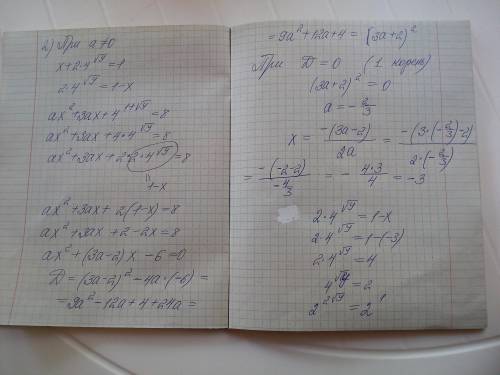 2) При a≠0
x+2·4^√y=1
2·4^√y=1-x
ax²+3ax+4^1+√y=8
ax²+3ax+4·4^√y=8
ax²+3ax+2·2·4^√y=8
||
1-x
ax²+3ax+2(1-x)=8
ax²+3ax+2-2x=8
ax²+(3a-2)x-6=0
D=(3a-2)²-4a·(-6)=
=9a²-12a+4+24a=
=9a²+12a+4=(3a+2)²
При D=0 (1 корень)
(3a+2)²=0
a=-2/3
x=-(3a-2)/2a=-(3·(-2/3)-2)/2·(-2/3)=
=-(-2-2)/-4/3=-4·3/4=-3
2·4^√y=1-x
2·4^√y=1-(-3)
2·4^√y=4
4^√y=2
2^2√y=2^1